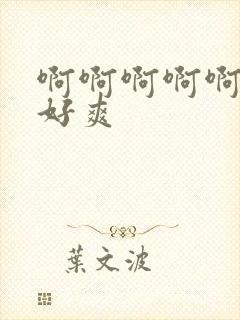 啊啊啊啊啊
好爽
葉文波